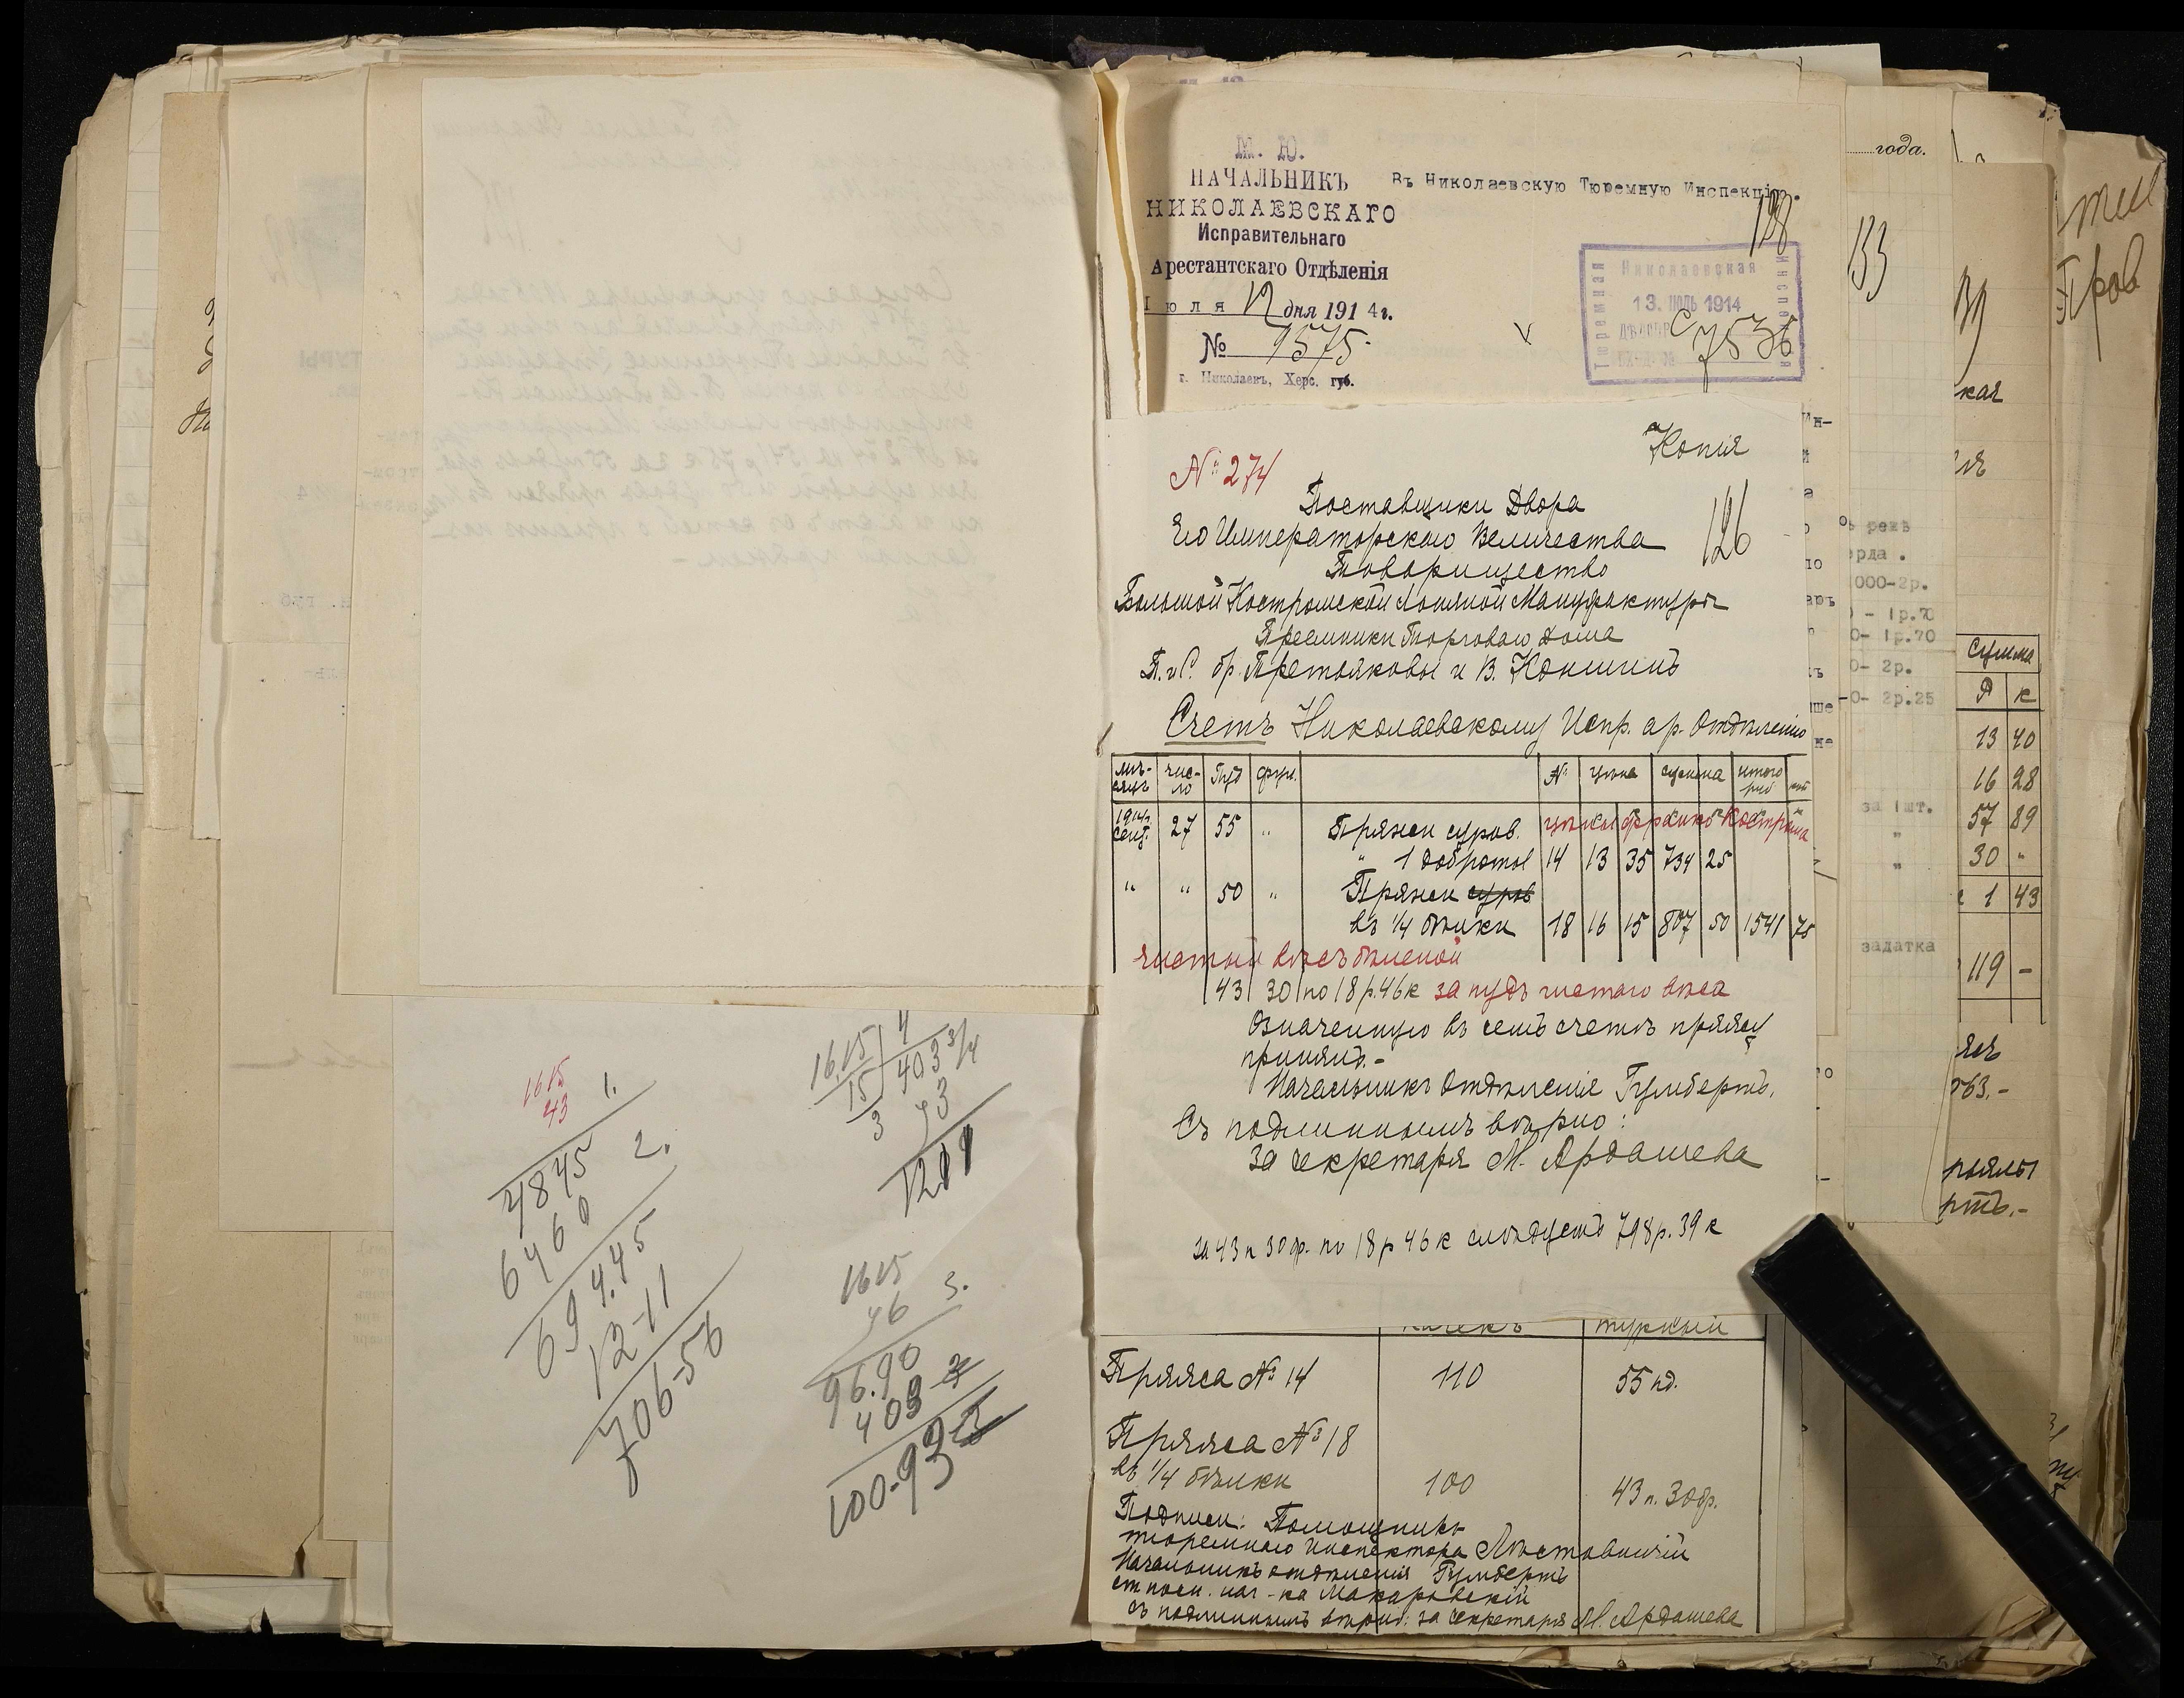 1615
43
1.
4845
6460
2.
694.45
12-11
706-56
16.15 4
15 403 3/4
3 43
1211
1615
46 3.
96.90
403
100-93
М. Ю.
НАЧАЛЬНИКЪ
НИКОЛАЕВСКАГО
Исправительнаго
Арестантскаго Отдѣленія
Іюля 12 дня 1914 г.
№ 9575
г. Николаевъ, Херс. губ.
Въ Николаевскую Тюремную Инспекцію.
128
Николаевская
Тюремная
Инспекція
13. ІЮЛЬ 1914
7536
Копія
№ 274
Поставщики Двора
Его Императорскаго Величества
126
Товарищество
Большой Костромской Льняной Мануфактуры
Преемники Торговаго Дома
П. и С. бр. Третьяковы и В. Коншинъ
Счетъ Николаевскому Испр. ар. Отдѣленію
мѣсяцъ число Пуд фун. № цѣна сумма итого руб коп
1914 г. Сент. 27 55 " Пряжи суров. цѣны франко Кострома
" 1 добротов 14 13 35 734 25
" " 50 " Пряжи суров
въ 1/4 бѣлки 18 16 15 807 50 1541 75
чистый вѣсъ бѣленой
43 30 по 18 р. 46 к за пудъ чистаго вѣса
Означенную въ семъ счетѣ пряжу
принялъ.-
Начальникъ Отдѣленія Гумбертъ.
Съ подлиннымъ вѣрно:
За секретаря М. Ардашева
за 43 п 30 ф. по 18 р 46 к слѣдуетъ 798 р. 39 к
Пряжа № 14 110 55 пд.
Пряжа № 18
въ 1/4 бѣлки 100 43 п. 30 ф.
Подписи: Помощникъ
тюремнаго инспектора
Начальникъ отдѣленія Гумбертъ
Макаровскій
съ подлиннымъ вѣрно: за секретаря М. Ардашева
года.
133
000-2р.
1р.70
0- 1р.70
0- 2р.
0- 2р.25
за 1шт.
"
"
задатка
Сумма
Р к
13 40
16 28
57 89
30 "
1 43
119 -